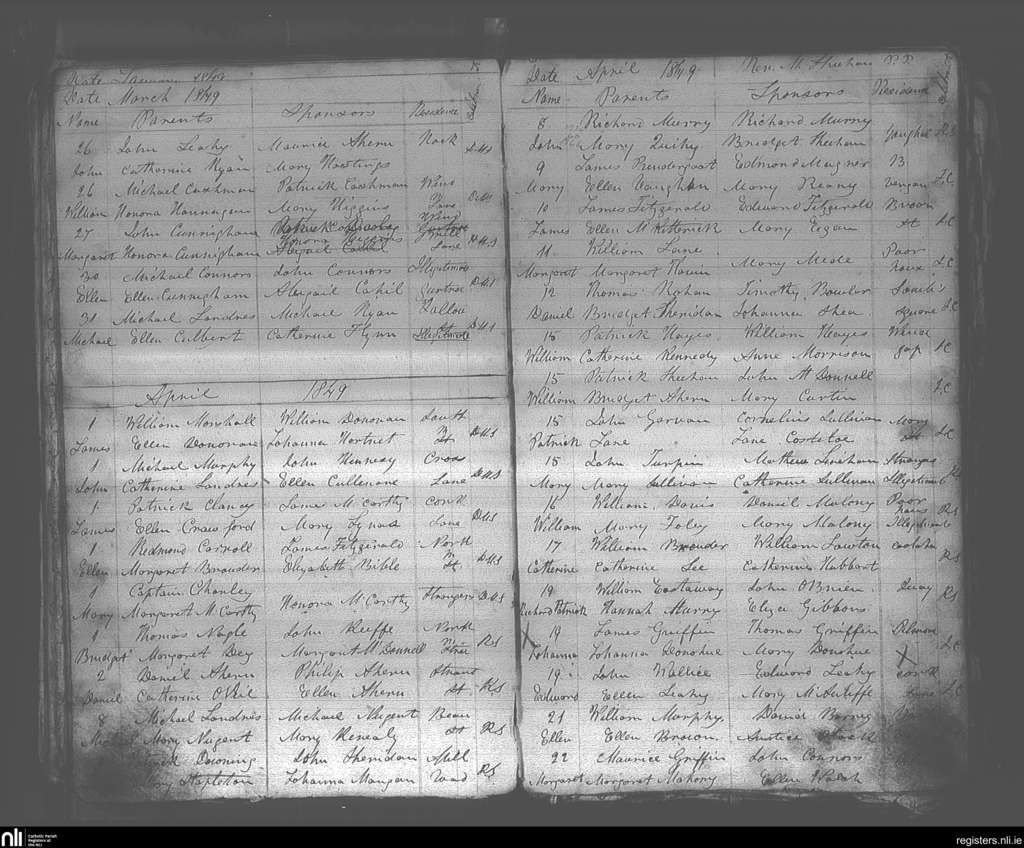 Date January 1849
Date March 1849
Name Parents Sponsors Residence
26 John Leahy Maurice Ahern Nock
John Catherine Ryan Mary Hastings D.M.S
26 Michael Cashman Patrick Cashman Wind
William Honora Hannagan Mary Higgins Lane D.M.S
27 John Cunnigham
Margaret Honora Cunnigham Lane D.M.S
30 Michael Connors John Connors Illegitimate
Ellen Ellen Cunnigham Abigail Cahil D.M.S
31 Michael Landres Michael Ryan Tallow
Michael Ellen Culbert Catherine Flynn St D.M.S
Illegitimate
April 1849
1 William Marshall William Donovan South
James Ellen Donovan Johanna Hortnet St D.M.S
1 Michael Murphy John Hennesy Cross
John Catherine Landres Ellen Cullenane Lane D.M.S
1 Patrick Clancy James McCarthy Cork
James Ellen Crawford Mary Lynes Lane D.M.S
1 Redmond Carroll James Fitzgerald North
Ellen Margaret Browder Elizabeth Bible St D.M.S
1 Captain Chanley
Mary Margaret McCarthy Honora McCarthy Strangers D.M.S
1 Thomas Nagle John Keeffe North
Bridget Margaret Dey Margaret McDonnell R.S
2 Daniel Ahern Philip Ahern Strand
Daniel Catherine O'Neil Ellen Ahern St R.S
8 Michael Landres Michael Nugent Beau
Mary Nugent Mary Kenealy St R.S
Downing John Sheridan Mill
Mary Stapleton Johanna Mangan Road R.S
Date April 1849 Rev. M. Sheehan P.P.
Name Parents Sponsors Residence
8 Richard Murry Richard Murry
John Mary Quihy Bridget Sheehan Youghal R.S
9 James Prendergast Edmond Mugner
Mary Ellen Gaughan Mary Reany J.C
10 James Fitzgerald Edward Fitzgerald
James Ellen McKeternick Mary Egan St J.C
11 William Lane Poor
Margaret Margaret Flavin Mary Mede House J.C
12 Thomas Rohan Timothy Bowler
Daniel Bridget Sheridan Johanna Shea Square J.C
15 Patrick Hayes William Hayes
William Catherine Kennedy Anne Morrison Gap J.C
15 Patrick Sheehan John McDonnell
William Bridget Ahern Mary Curtin J.C
15 John Garvan Cornelius Sullivan
Patrick Jane Jane Costiloe St J.C
15 John Turpin Mathew Sheehan Strangers
Mary Mary Sullivan Catherine Sullivan Illegitimate
16 William Davis Daniel Malony Poor
William Mary Foley Mary Malony House R.S
Illegitimate
17 William Browder William Lawton
Catherine Catherine Lee Catherine Hubbart R.S
19 William Eastaway John O'Brien Quay
Richard Patrick Hannah Murry Eliza Gibbons R.S
X 19 James Griffin Thomas Griffin
Johanna Johanna Donohue Mary Donohue X J.C
19 John Wallice Edward Leahy Cork
Edward Ellen Leahy Mary McAuliffe Lane J.C
21 William Murphy David Barry
Ellen Ellen Brown
22 Maurice Griffin John Connors
Margaret Margaret Mahony Ellen Walsh
nli Catholic Parish Registers at the NLI
registers.nli.ie